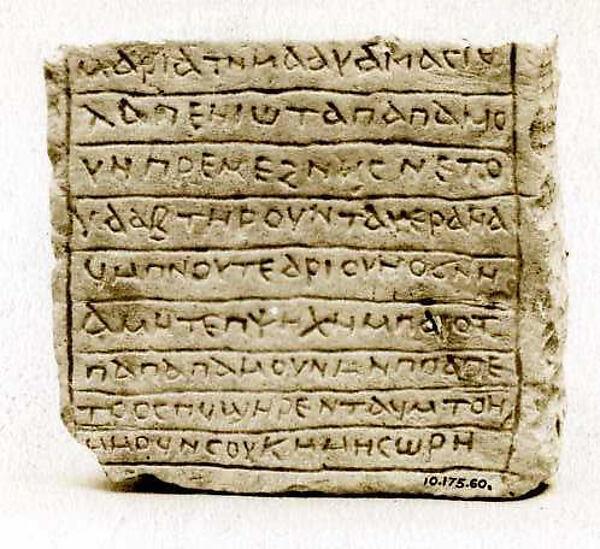 ⲙⲁⲣⲓⲁⲧⲙⲁⲁⲩⲁⲙⲁⲥⲓⲃ
ⲗⲁⲡⲉⲛⲓⲱⲧⲁⲡⲁⲡⲁⲙⲟ
ⲩⲛⲡⲣⲉⲙⲉϩⲛⲏⲥⲛⲉⲧⲟ
ⲩⲁⲁⲃⲧⲏⲣⲟⲩⲛⲧⲁⲩⲉⲣⲁⲛⲁ
ϥⲙⲡⲛⲟⲩⲧⲉⲁⲣⲓⲟⲩⲛⲟϭⲛⲛ
ⲁⲙⲛⲧⲉⲡⲯⲏⲭⲏⲙⲡⲁⲓⲟⲧ
ⲡⲁⲡⲁⲡⲁⲙⲟⲩⲛⲙⲛⲡⲡⲁⲡⲉ
ⲧⲣⲟⲥⲡϥϣⲏⲣⲉⲛⲧⲁⲩⲙⲧⲟⲛ
ⲙⲙⲟⲩⲛⲥⲟⲩⲕⲏⲙⲙⲏⲥⲱⲣⲏ
10.175.60.